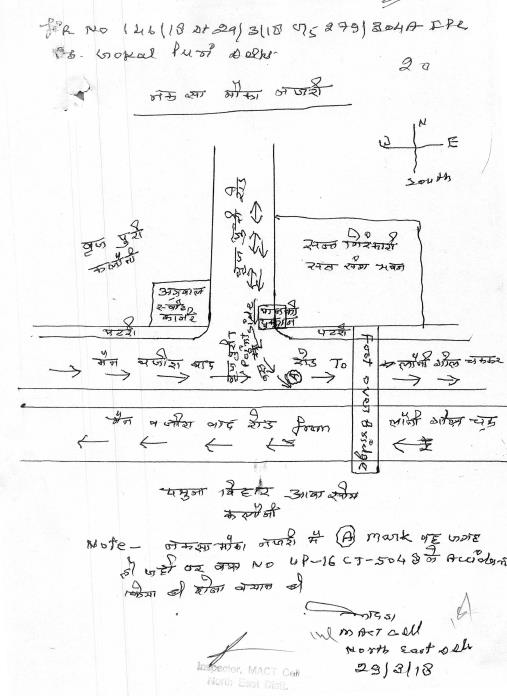 FIR No 146/18 dt 29/3/18 u/s 279/304A IPC
PS. Gokal Puri Delhi
नक्शा मौका नजरी
N
W
E
South
बृज पुरी रोड
बृज पुरी
कलोनी
सन्त निरंकारी
सत संग भवन
अग्रवाल
स्वीट
कार्नर
पटरी
पटरी
मैन वजीरा बाद
रोड To
लोनी गोल चक्कर
A
Foot over Bridge
मैन वजीरा बाद रोड From
लोनी गोल चक्कर
यमुना विहार आवासीय
कलोनी
Note- नक्शा मौका नजरी में (A) mark वह जगह
है जहाँ पर बस No UP-16 CT-5048 ने Accident
किया है होना बयान है
MACT Cell
North East Delhi
29/3/18
Inspector, MACT Cell
North East Distt.